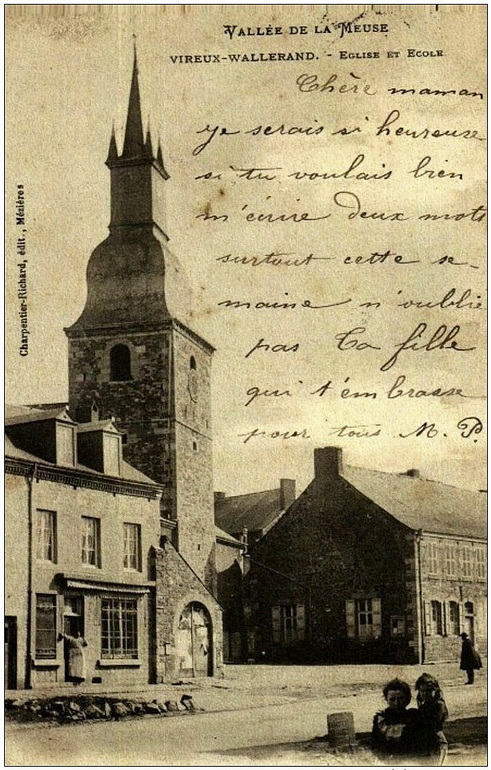 VALLÉE DE LA MEUSE
VIREUX-WALLERAND. - EGLISE ET ECOLE
Chère maman
je serais si heureuse
si tu voulais bien
m'écrire deux mots
surtout cette se-
maine n'oublie
pas Ta fille
qui t'embrasse
pour tous M. P.
Charpentier-Richard, édit., Mézières